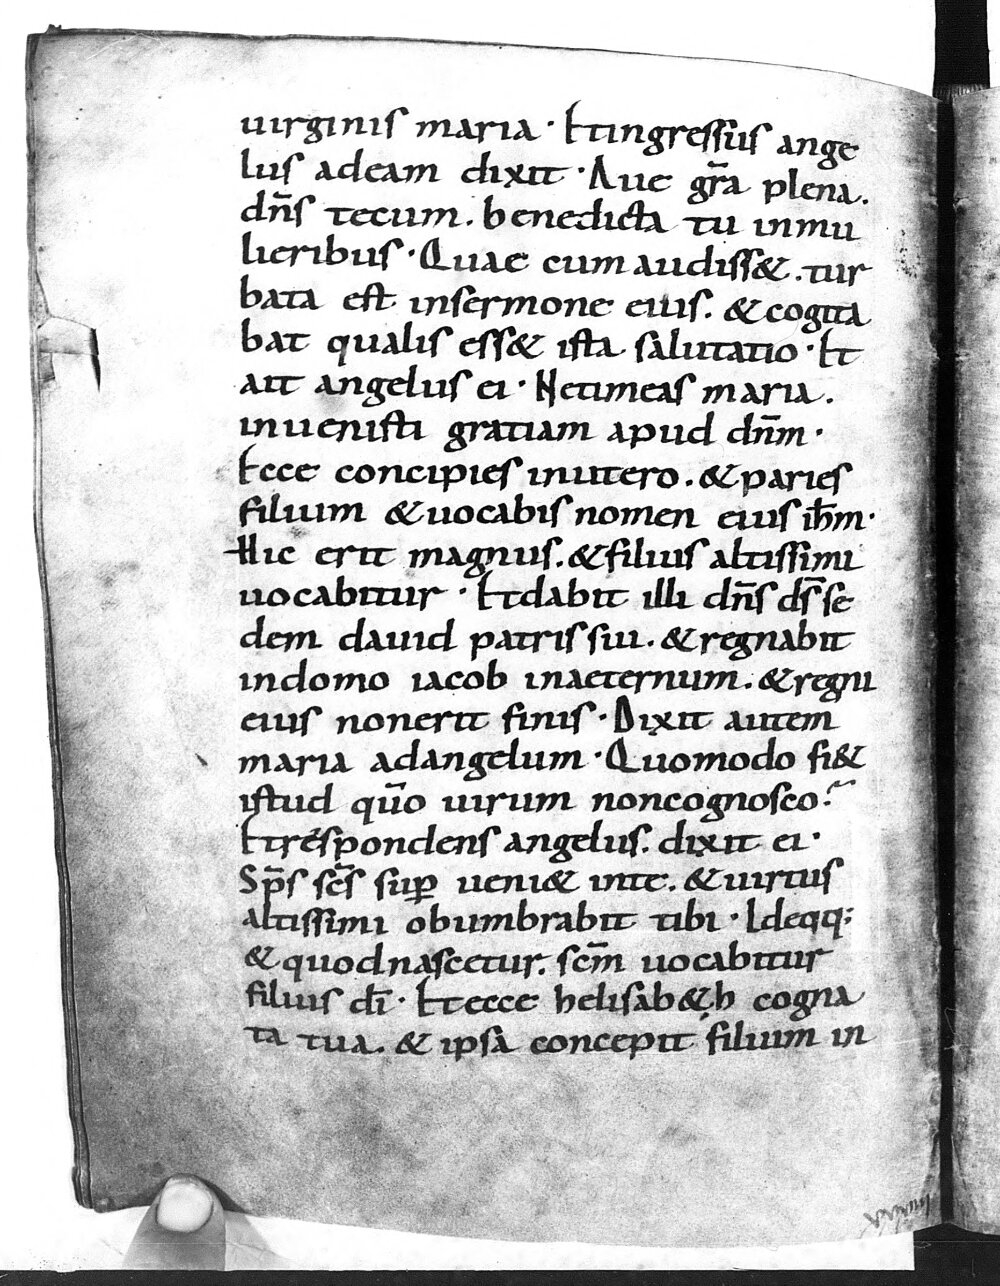 uirginis maria · Et ingressus ange
lus ad eam dixit · Aue gr̄a plena.
dn̄s tecum. benedicta tu in mu
lieribus · Quae cum audiss&. tur
bata est in sermone eius. & cogita
bat qualis ess& ista salutatio · Et
ait angelus ei · Ne timeas maria.
inuenisti gratiam apud dn̄m ·
Ecce concipies in utero. & paries
filium & uocabis nomen eius ih̄m ·
Hic erit magnus. & filius altissimi
uocabitur · Et dabit illi dn̄s ds̄ se
dem dauid patris sui. & regnabit
in domo iacob in aeternum. & regni
eius non erit finis · Dixit autem
maria ad angelum · Quomodo fi&
istud qūo uirum non cognosco?
Et respondens angelus. dixit ei ·
Sp̄s sc̄s sup̱ ueni& in te. & uirtus
altissimi obumbrabit tibi · Ideoq;
& quod nascetur. sc̄m uocabitur
filius dī · Et ecce helisab&h cogna
ta tua. & ipsa concepit filium in